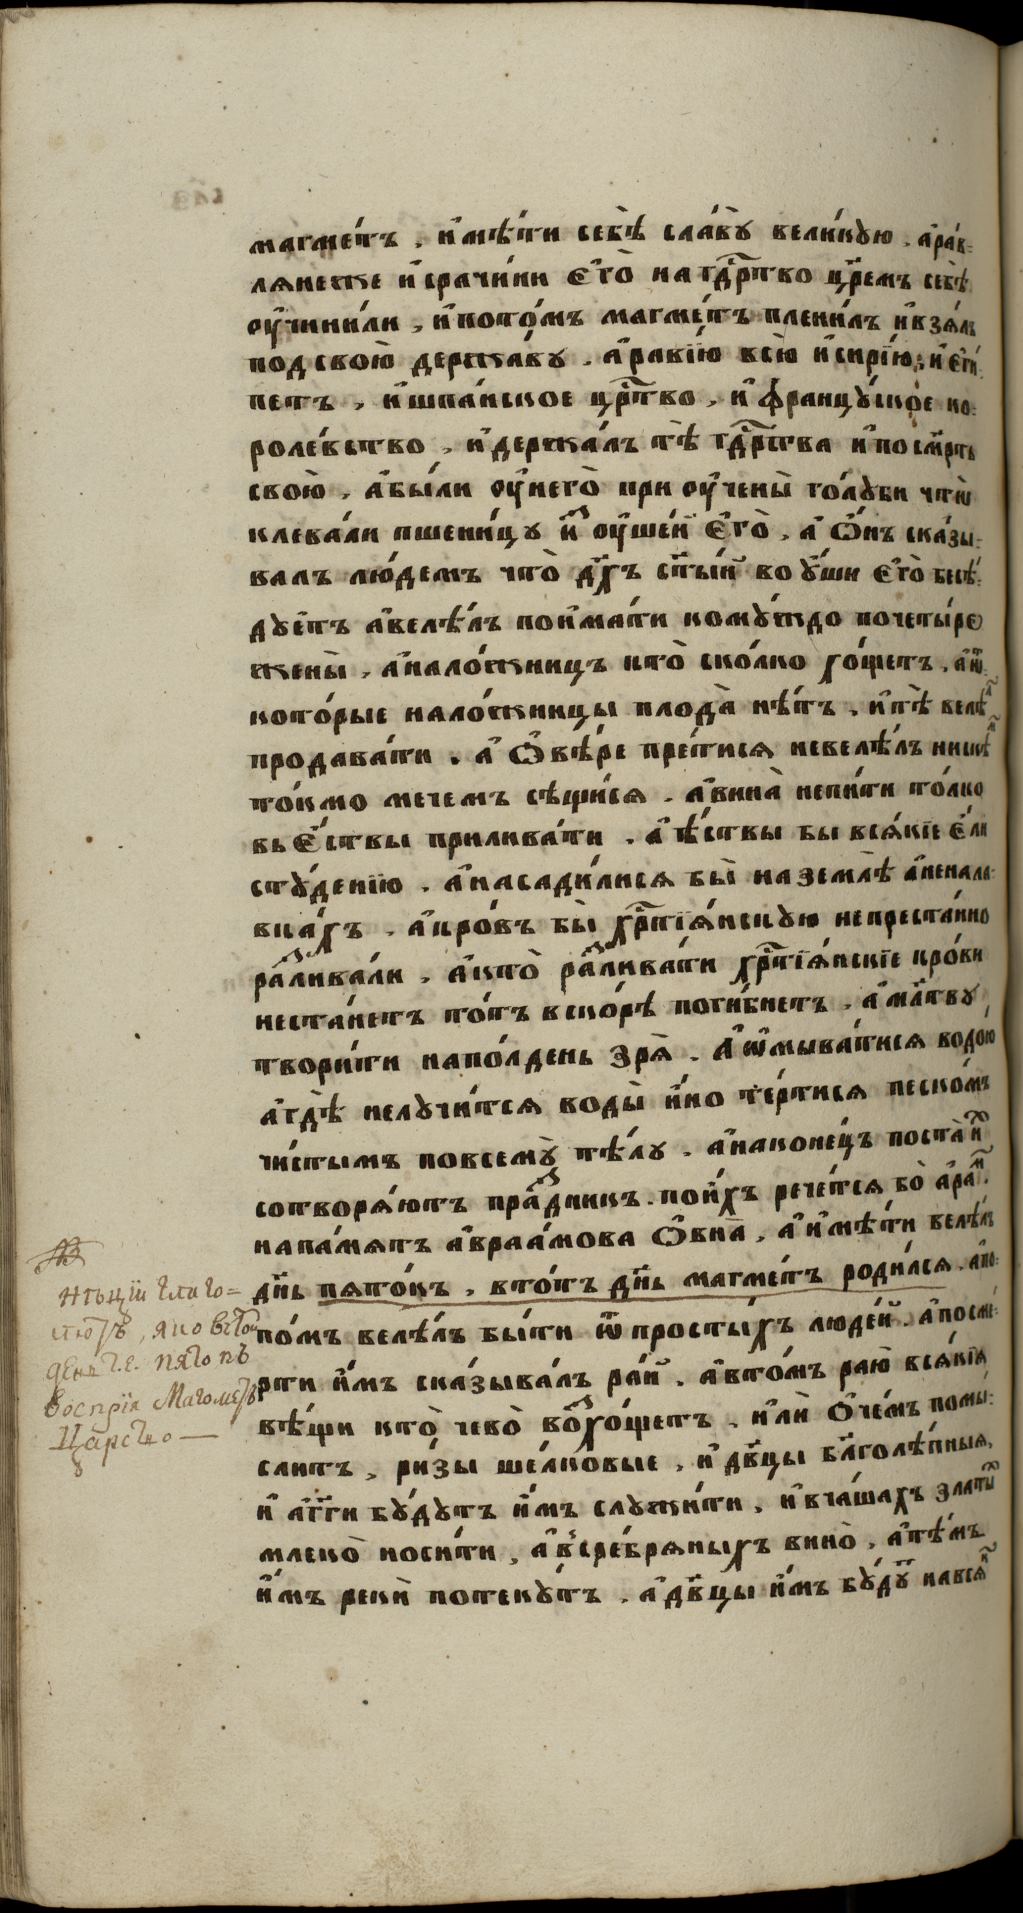 магме́тъ , и҆мѣ́ти себѣ̀ сла́вꙋ вели́кꙋю . а҆ра́в-
ляне же и҆ срачи́ни є҆го̀ на гдⷭ҇рт҇во цр҃емъ себѣ̀
ᲂу҆чини́ли , и҆ пото́мъ магме́тъ плени́лъ и҆ взѧ́лъ
под свою̀ держа́вꙋ . а҆ра́вїю всю̀ и҆ сирі́ю , и҆ є҆ги́-
петъ , и҆ шпа́нское црⷭ҇тво , и҆ францꙋ́ское ко-
роле́вство , и҆ держа́лъ тѣ̀ гдⷭ҇рт҇ва и҆ по сме́рть
свою̀ , а҆ бы́ли ᲂу҆ него̀ при ᲂу҆чены̀ го́лꙋби что̀
клева́ли пшени́цꙋ и҆з̾ ᲂу҆ше́й є҆го̀ , а҆ ѻ҆́нъ ска́зы-
валъ лю́демъ что̀ дх҃ъ ст҃ы́й во ᲂу҆́ши є҆го̀ бесѣ́-
дꙋетъ а҆ велѣ́лъ пойма́ти комꙋ́ждо по четы́ре
жены̀ , а҆ нало́жницъ кто̀ ско́лко хо́щетъ , а҆ ᲂу҆
кото́рые нало́жницы плода̀ нѣ́тъ , и҆ тѣ̀ велѣ́л
продава́ти . а҆ ѻ҆ вѣ́ре пре́тися не велѣ́лъ ни с кѣ́м
то́кмо мечемъ сѣщи́ся . а҆ вина̀ не пи́ти то́лко
въ є҆́ствы прилива́ти . а҆ ѣ҆́ствы бы всѧ́кїе є҆́ли
стꙋ́денїю . а҆ насади́лися бы̀ на землѣ̀ а҆ не на ла-
вка́хъ . а҆ кро́въ бы̀ хрⷭ҇тїѧ́нскꙋю непреста́нно
разлива́ли , а҆ кто̀ разлива́ти хрⷭ҇тїѧ́нскїе кро́ви
не ста́нетъ то́тъ вско́рѣ поги́бнетъ . а҆ мл҃твꙋ
твори́ти на по́лдень зрѧ̀ . а҆ ѡ҆мыва́тися водо́ю
а҆ гдѣ̀ не лꙋчи́тся воды̀ и҆́но те́ртися песко́мъ
чи́стымъ по всемꙋ̀ тѣ́лꙋ . а҆ наконе́цъ поста̀ и҆х
сотворѧ́ютъ пра́здникъ . по и҆́хъ рече́тся бо̀ а҆ра́м
на па́мять а҆враа́мова ѻ҆вна̀ , а҆ и҆мѣ́ти велѣ́лъ
дн҃ь пято́къ , в то́тъ дн҃ь магме́тъ роди́лся . а҆ по-
по́мъ велѣ́лъ бы́ти ѿ просты́хъ люде́й . а҆ по сме-
рти и҆́мъ ска́зывалъ ра́й . а҆ в то́мъ раю̀ всѧ́кїя
вѣ́щи кто̀ чево̀ восхо́щетъ , и҆лѝ ѻ҆ че́мъ помы́-
слитъ , ри́зы ше́лковые , и҆ дв҃цы бл҃голѣ́пныя ,
и҆ а҆гг҃ли бꙋ́дꙋтъ и҆́мъ слꙋжи́ти , и҆ в ча́шахъ златы́х
млеко̀ носи́ти , а҆ в сре́бряныхъ вино̀ , а҆ тѣ́мъ
и҆́мъ рекѝ потекꙋ́тъ . а҆ дв҃цы и҆́мъ бꙋ́дꙋт на всѧ̀
NB
нѣцыи глаго=
лютъ , яко в той
день т.е. пятокъ
восприя Магометъ
Царство —